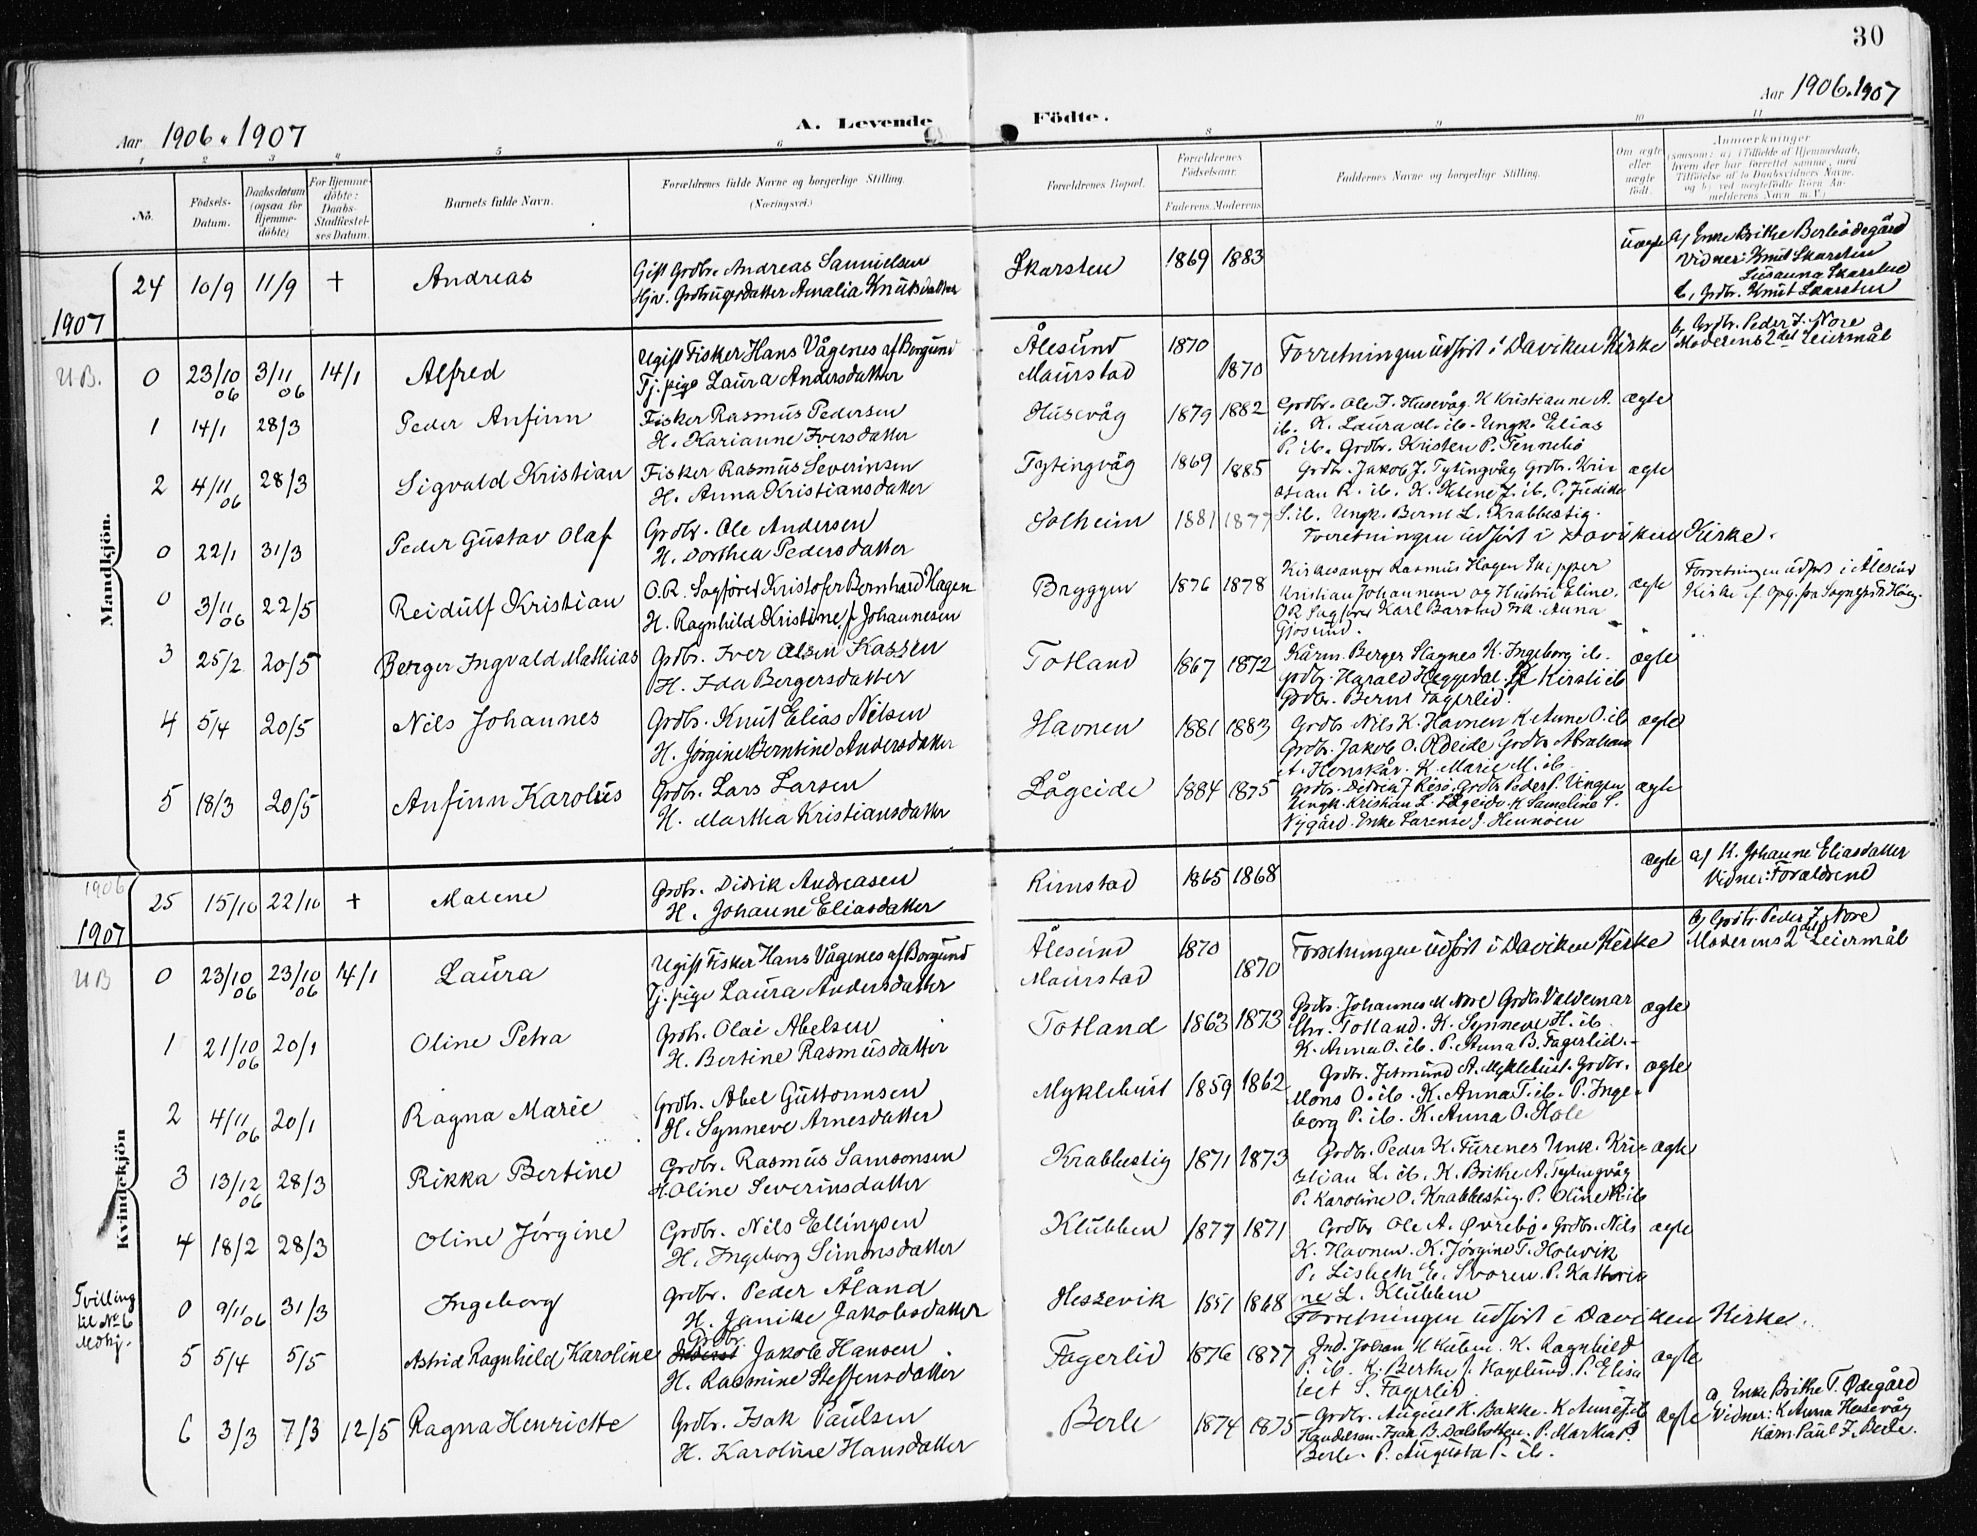 30
Aar 1906 & 1907
A. Levende
Födte.
Aar 1906 & 1907
1 2 3 4 5 6 8 9 10 11
No.
Födsels-Datum.
Daabsdatum (ogsaa for Hjemme-döbte)
For Hjemme-döbte: Daabs-Stadfæstel-ses Datum.
Barnets fulde Navn.
Forældrenes fulde Navne og borgerlige Stilling. (Næringsvei.)
Forældrenes Bopæl.
Forældrenes Födselsaar.
Faderens. Moderens.
Faddernes Navne og borgerlige Stilling.
Om ægte eller uægte födt.
Anmærkninger (saasom: a) i Tilfælde af Hjemmedaab, hvem der har forrettet samme, med Tilföielse af to Daabsvidners Navne, og b) ved uægtefödte Börn An-melderens Navn m. V.)
Mandkjön.
24 10/9 11/9 + Andreas
Gift Grdbr. Andreas Samuelsen
Hjv. Grdbrugerdatter Amalia Knutsdatter
Skarsten 1869 1883
uægte a, Enke Brithe Berleödegård
Vidner: Knut Skarsten
Susanna Skarsten
b, Grdbr. Knut Skarsten
1907
U.B. 0 23/10 06 3/11 06 14/1 Alfred
Ugift Fisker Hans Vågenes af Borgund
Tj.pige Laura Andersdatter
Ålesund 1870
Maurstad 1870
Forretningen udført i Daviken Kirke
b, Grdbr. Peder J. Nore
Moderens 2det Leiermål
1 14/1 28/3 Peder Anfinn
Fisker Rasmus Pedersen
H. Karianne Iversdatter
Husevåg 1879 1882
Grdbr. Ole J. Husevåg. K Kristianne A.
ib. K. Laura M. ib. Ungk. Elias
P. ib. Grdbr. Kristen P. Tennebø
ægte
2 4/11 06 28/3 Sigvald Kristian
Fisker Rasmus Severinsen
H. Anna Kristiansdatter
Tytingvåg 1869 1885
Grdbr. Jakob J. Tytingvåg Grdbr. Kri-
stian R. ib. K. Helene J. ib. P. Judithe
S. ib. Ungk. Bernt L. Krabbestig.
ægte
0 22/1 31/3 Peder Gustav Olaf
Grdbr. Ole Andersen
H. Dorthea Pedersdatter
Solheim 1881 1877
Forretningen udført i Daviken Kirke.
0 3/11 06 22/5 Reidulf Kristian
O.R. Sagfører Kristofer Bernhard Hagen
H. Ragnhild Kristine f. Johannesen
Bryggen 1876 1878
Kirkesanger Rasmus Hagen Skipper
Kristian Johannesen og Hustru Eline.
O.R. Sagfører Karl Barstad Frk. Anna
Gjøsund.
ægte
Forretningen udført i Ålesund
Kirke
3 25/2 20/5 Berger Ingvald Mathias
Grdbr. Iver Olsen Kassen
H. Ida Bergersdatter
Totland 1867 1872
Kårm. Berger Hagnes K. Ingeborg ib.
Grdbr. Harald Heggedal. K Kirsti ib
Grdbr. Bernt Fagerlid.
ægte
4 5/4 20/5 Nils Johannes
Grdbr. Knut Elias Nilsen
H. Jørgine Berntine Andersdatter
Havnen 1881 1883
Grdbr. Nils K. Havnen K Anne O. ib
Grdbr. Jakob O. Rdeide Grdbr. Abraham
A. Henskår. K. Marie M. ib.
ægte
5 18/3 20/5 Anfinn Karolus
Grdbr. Lars Larsen
H. Martha Kristiansdatter
Lågeide 1884 1875
Grdbr. Didrik J Risø. Grdbr. Peder P. Vingen
Ungk. Kristian L. Lågeide. K Sameline S.
Nygård. Enke Larense J. Hennøen
ægte
Kvindekjön
1906
25 15/10 22/10 + Malene
Grdbr. Didrik Andreasen
H. Johanne Eliasdatter
Rimstad 1865 1868
ægte a, K. Johanne Eliasdatter
Vidner: Forældrene
1907
U B 0 23/10 06 23/10 06 14/1 Laura
Ugift Fisker Hans Vågenes af Borgund
Tj.pige Laura Andersdatter
Ålesund 1870
Maurstad 1870
Forretningen udført i Daviken Kirke
b, Grdbr. Peder J. Nore
Moderens 2det Leiermål
1 21/10 06 20/1 Oline Petra
Grdbr. Olai Abelsen
H. Bertine Rasmusdatter
Totland 1863 1873
Grdbr. Johannes M. Nore Grdbr. Valdemar
Chr. Totland. K. Synneve H. ib
K. Anna O. ib. P. Anna B. Fagerlid.
ægte
2 4/11 06 20/1 Ragna Marie
Grdbr. Abel Guttormsen
H. Synneve Arnesdatter
Myklebust 1859 1862
Grdbr. Jetmund A. Myklebust. Grdbr.
Mons O. ib. K. Anna T. ib. P. Inge-
borg P. ib. K. Anna O. Hole
ægte
3 13/12 06 28/3 Rikka Bertine
Grdbr. Rasmus Samsonsen
H. Oline Severinsdatter
Krabbestig 1871 1873
Grdbr. Peder K. Furenes Unk. Kri-
stian L. ib. K. Brithe A. Tytingvåg
P. Karoline O. Krabbestig. P. Oline R. ib
ægte
4 18/2 28/3 Oline Jørgine
Grdbr. Nils Ellingsen
H. Ingeborg Simonsdatter
Klubben 1877 1871
Grdbr Ole A. Øvrebø. Grdbr. Nils
K. Havnen. K. Jørgine T. Holevik
P. Lisbeth E. Svoren. P. Kathrin
ne L. Klubben
ægte
0 9/11 06 31/3 Ingeborg
Grdbr. Peder Åland
H. Janike Jakobsdatter
Hessevik 1851 1868
Forretningen udført i Daviken Kirke.
5 5/4 5/5 Astrid Ragnhild Karoline
Grdbr. Jakob Hansen
H. Rasmine Steffensdatter
Fagerlid 1876 1877
Ind. Johan K Kuben. K. Ragnhild
P. ib. K. Berthe J. Hagelund. P. Elisa
bet S. Fagerlid
ægte
Tvilling
til No 6
Mdkj.
6 3/3 7/3 12/5 Ragna Henriette
Grdbr. Isak Paulsen
H. Karoline Hansdatter
Berle 1874 1875
Grdbr. August K. Bakke. K Anne J. ib
Handelsm. Isak B. Dalsbotten. P. Marthe P.
Berle. P. Augusta P. ib.
ægte
a, Enke Brithe T. Ødegård
Vidner: K Anna Husevåg
Kårm. Paul J. Berle.